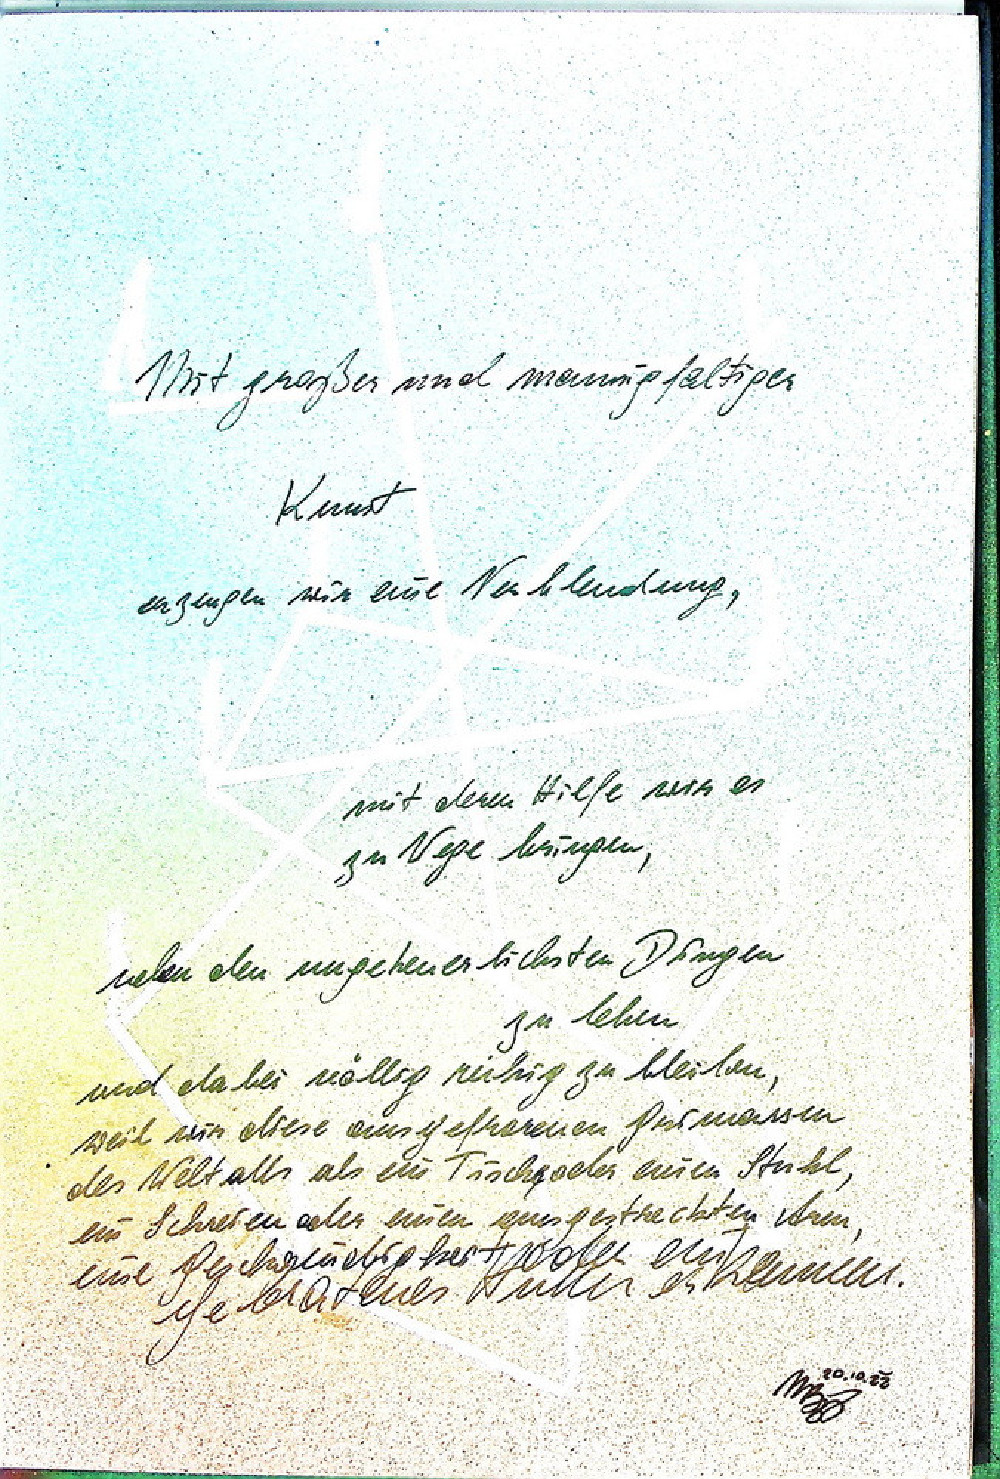 Mit großer und mannigfaltiger
Kunst
erzeugen wir eine Verblendung,
mit deren Hilfe wir es
zu Wege bringen,
neben den ungeheuerlichsten Dingen
zu leben
und dabei völlig ruhig zu bleiben,
weil wir diese ausgefrorenen Grimassen
des Weltalls als ein Tisch oder einen Stuhl,
ein Schreien oder einen ausgestreckten Arm,
eine Geschwindigkeit oder ein
gebratenes Huhn erkennen.
20.10.22